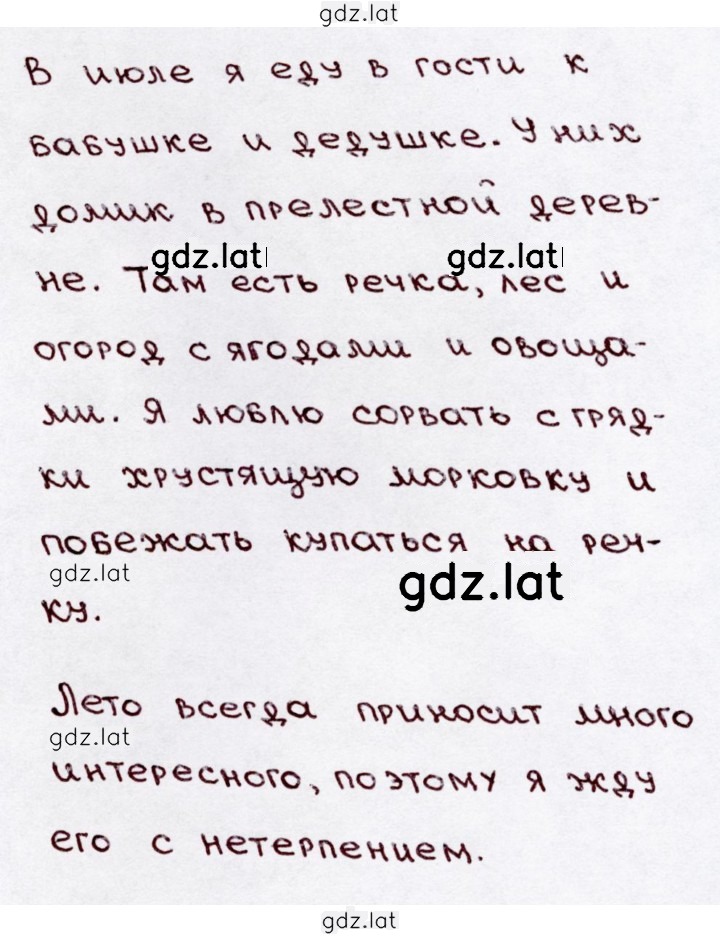 gdz.lat
В июле я еду в гости к
бабушке и дедушке. У них
домик в прелестной дерев-
gdz.lat gdz.lat
не. Там есть речка, лес и
огород с ягодами и овоща-
ми. Я люблю сорвать с гряд-
ки хрустящую морковку и
побежать купаться на реч-
gdz.lat gdz.lat
ку.
Лето всегда приносит много
gdz.lat
интересного, поэтому я жду
его с нетерпением.
gdz.lat